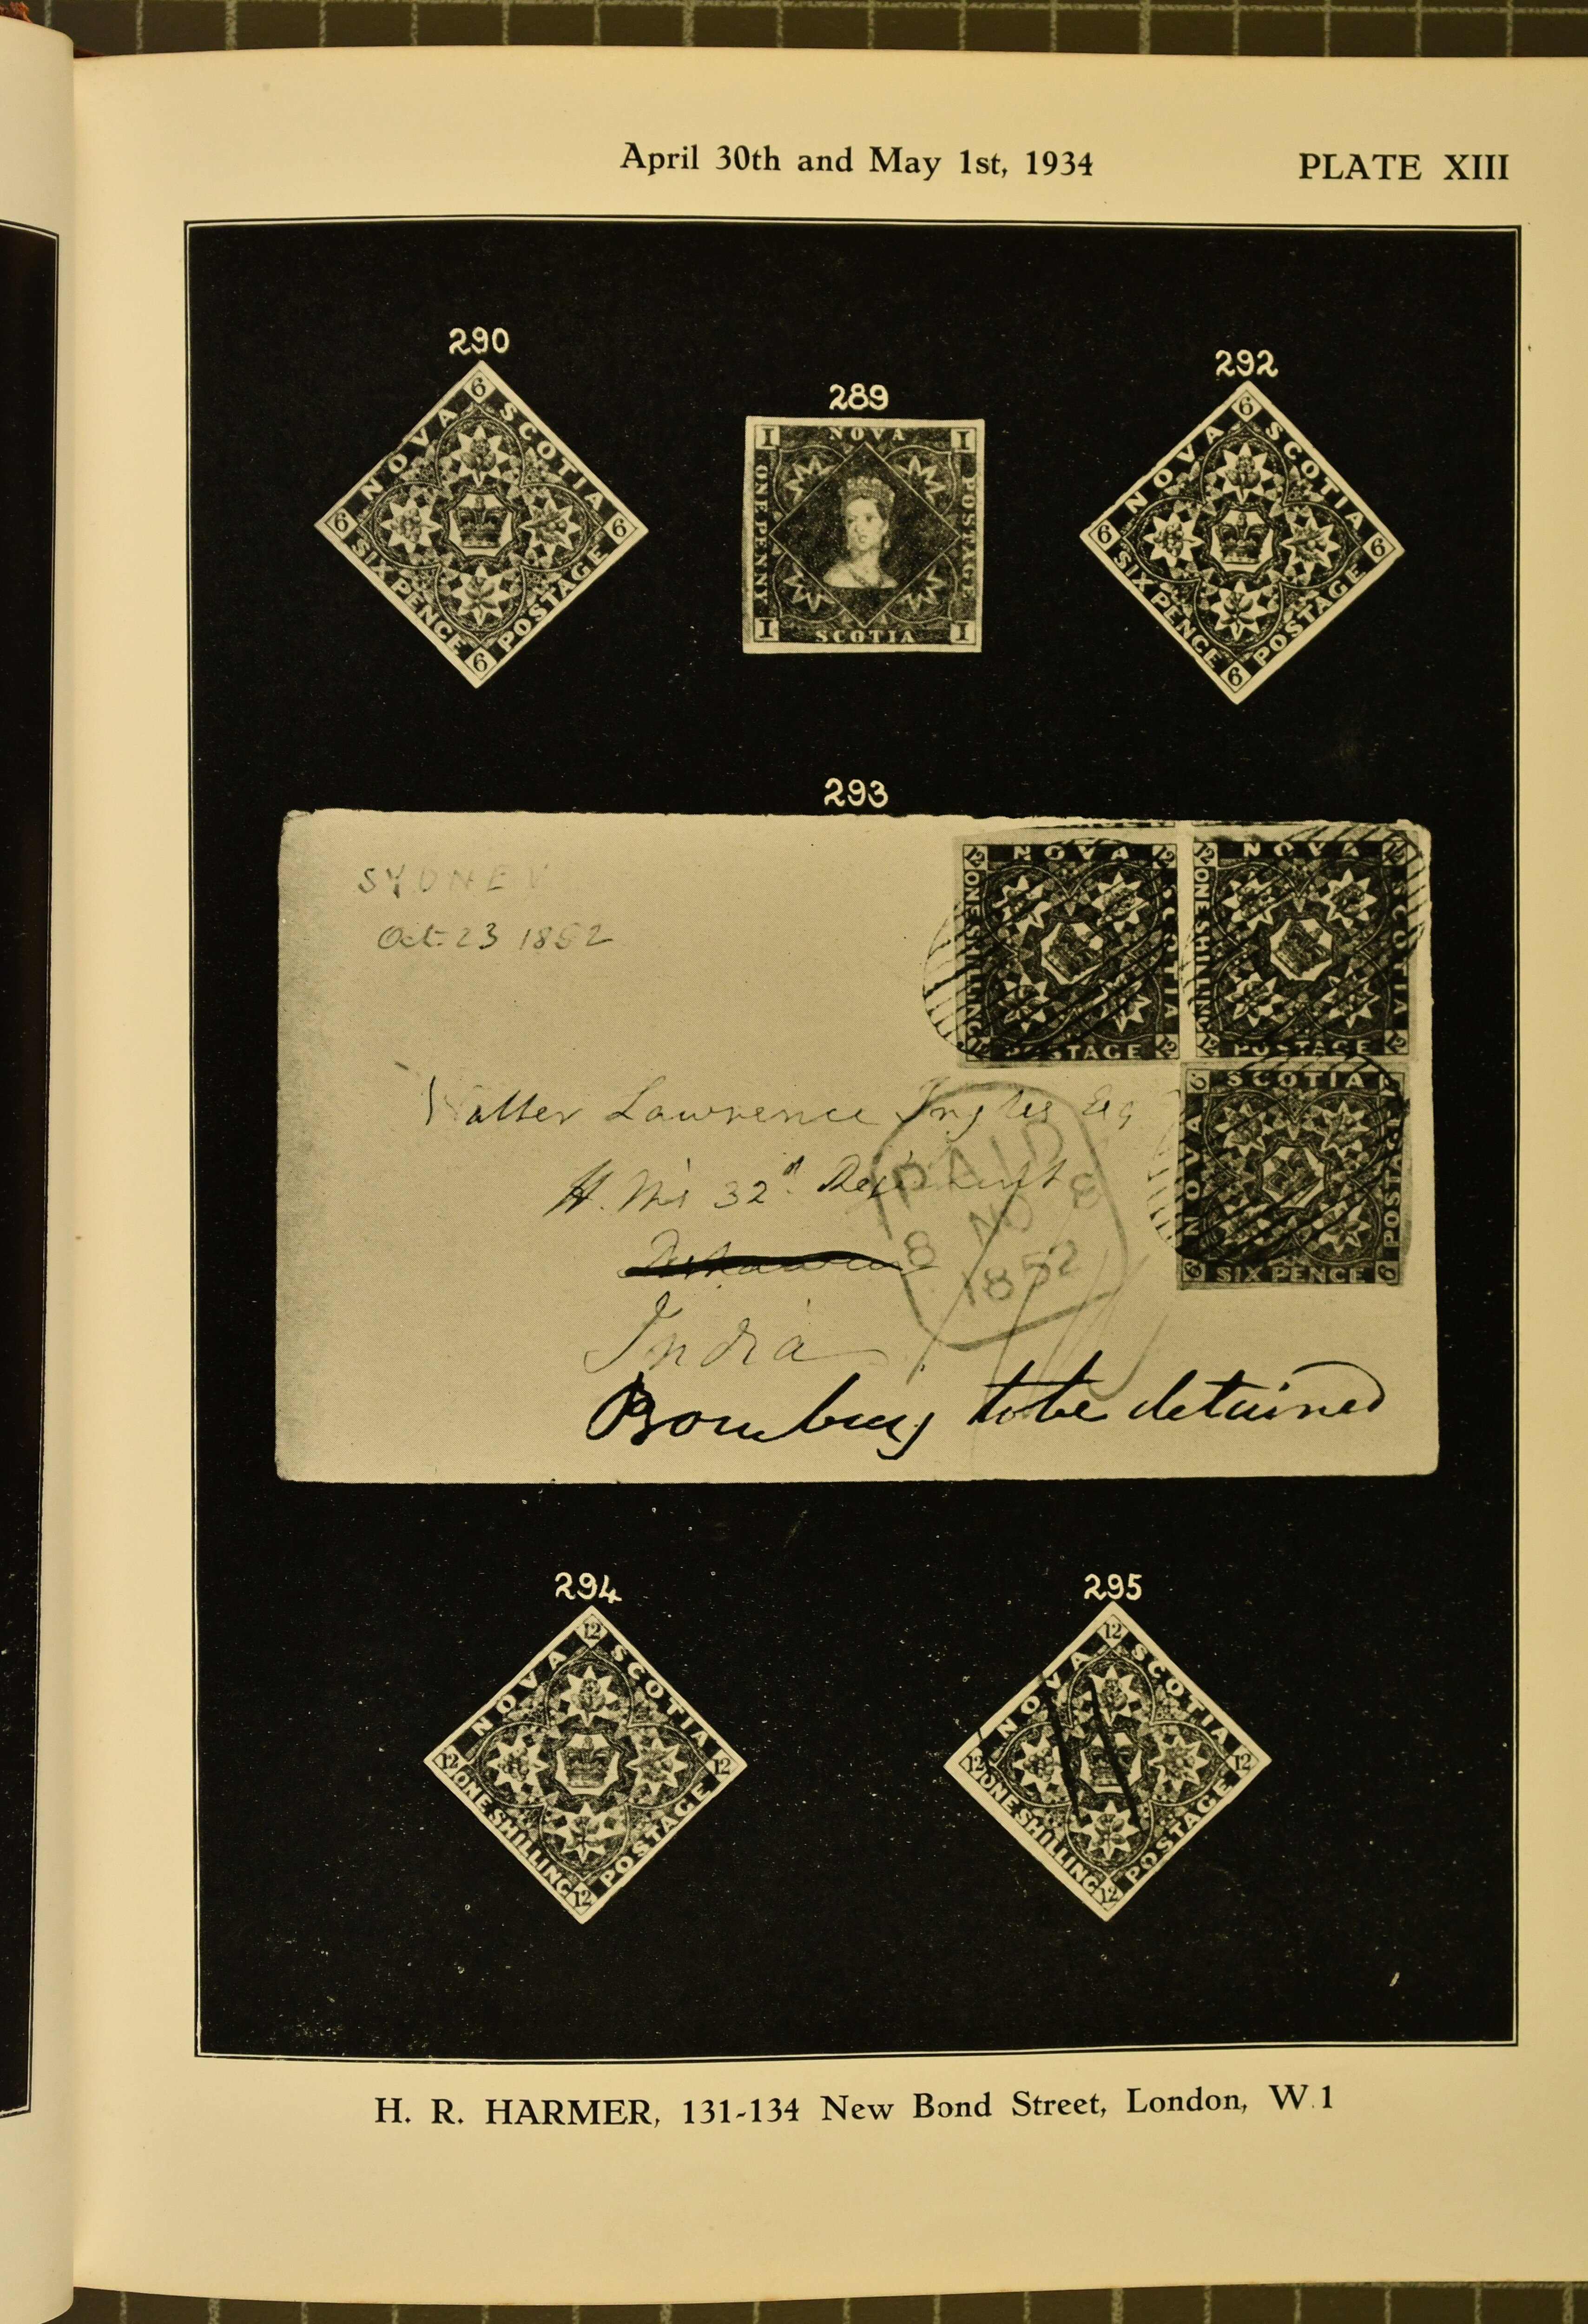 April 30th and May 1st, 1934 PLATE XIII
290
6
NOVA SCOTIA
6 6
SIX PENCE POSTAGE
6
289
I NOVA I
ONE PENNY POSTAGE
I SCOTIA I
292
6
NOVA SCOTIA
6 6
SIX PENCE POSTAGE
6
293
SYDNEY
Oct. 23 1852
12 NOVA 12
ONE SHILLING SCOTIA
12 POSTAGE 12
12 NOVA 12
ONE SHILLING SCOTIA
12 POSTAGE 12
6 SCOTIA
NOVA POSTAGE
6 SIX PENCE 6
Walter Lawrence Ingles Esq
H. M's 32d Regiment
India
Bombay to be detained
PAID
8 NO 8
1852
294
12
NOVA SCOTIA
12 12
ONE SHILLING POSTAGE
12
295
12
NOVA SCOTIA
12 12
ONE SHILLING POSTAGE
12
H. R. HARMER, 131-134 New Bond Street, London, W.1